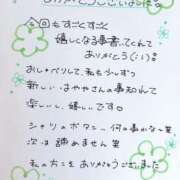 ありがとうございました。
今回もすごくすごく
嬉しくなる事書いてくれて
ありがとう(;;)
おしゃべりして、私も少しずつ
新しい、はややさんの事知れて
楽しいし、嬉しいです。
シャツのボタン…何の事かな笑
次は諦めません笑
私の方こそありがとうございました